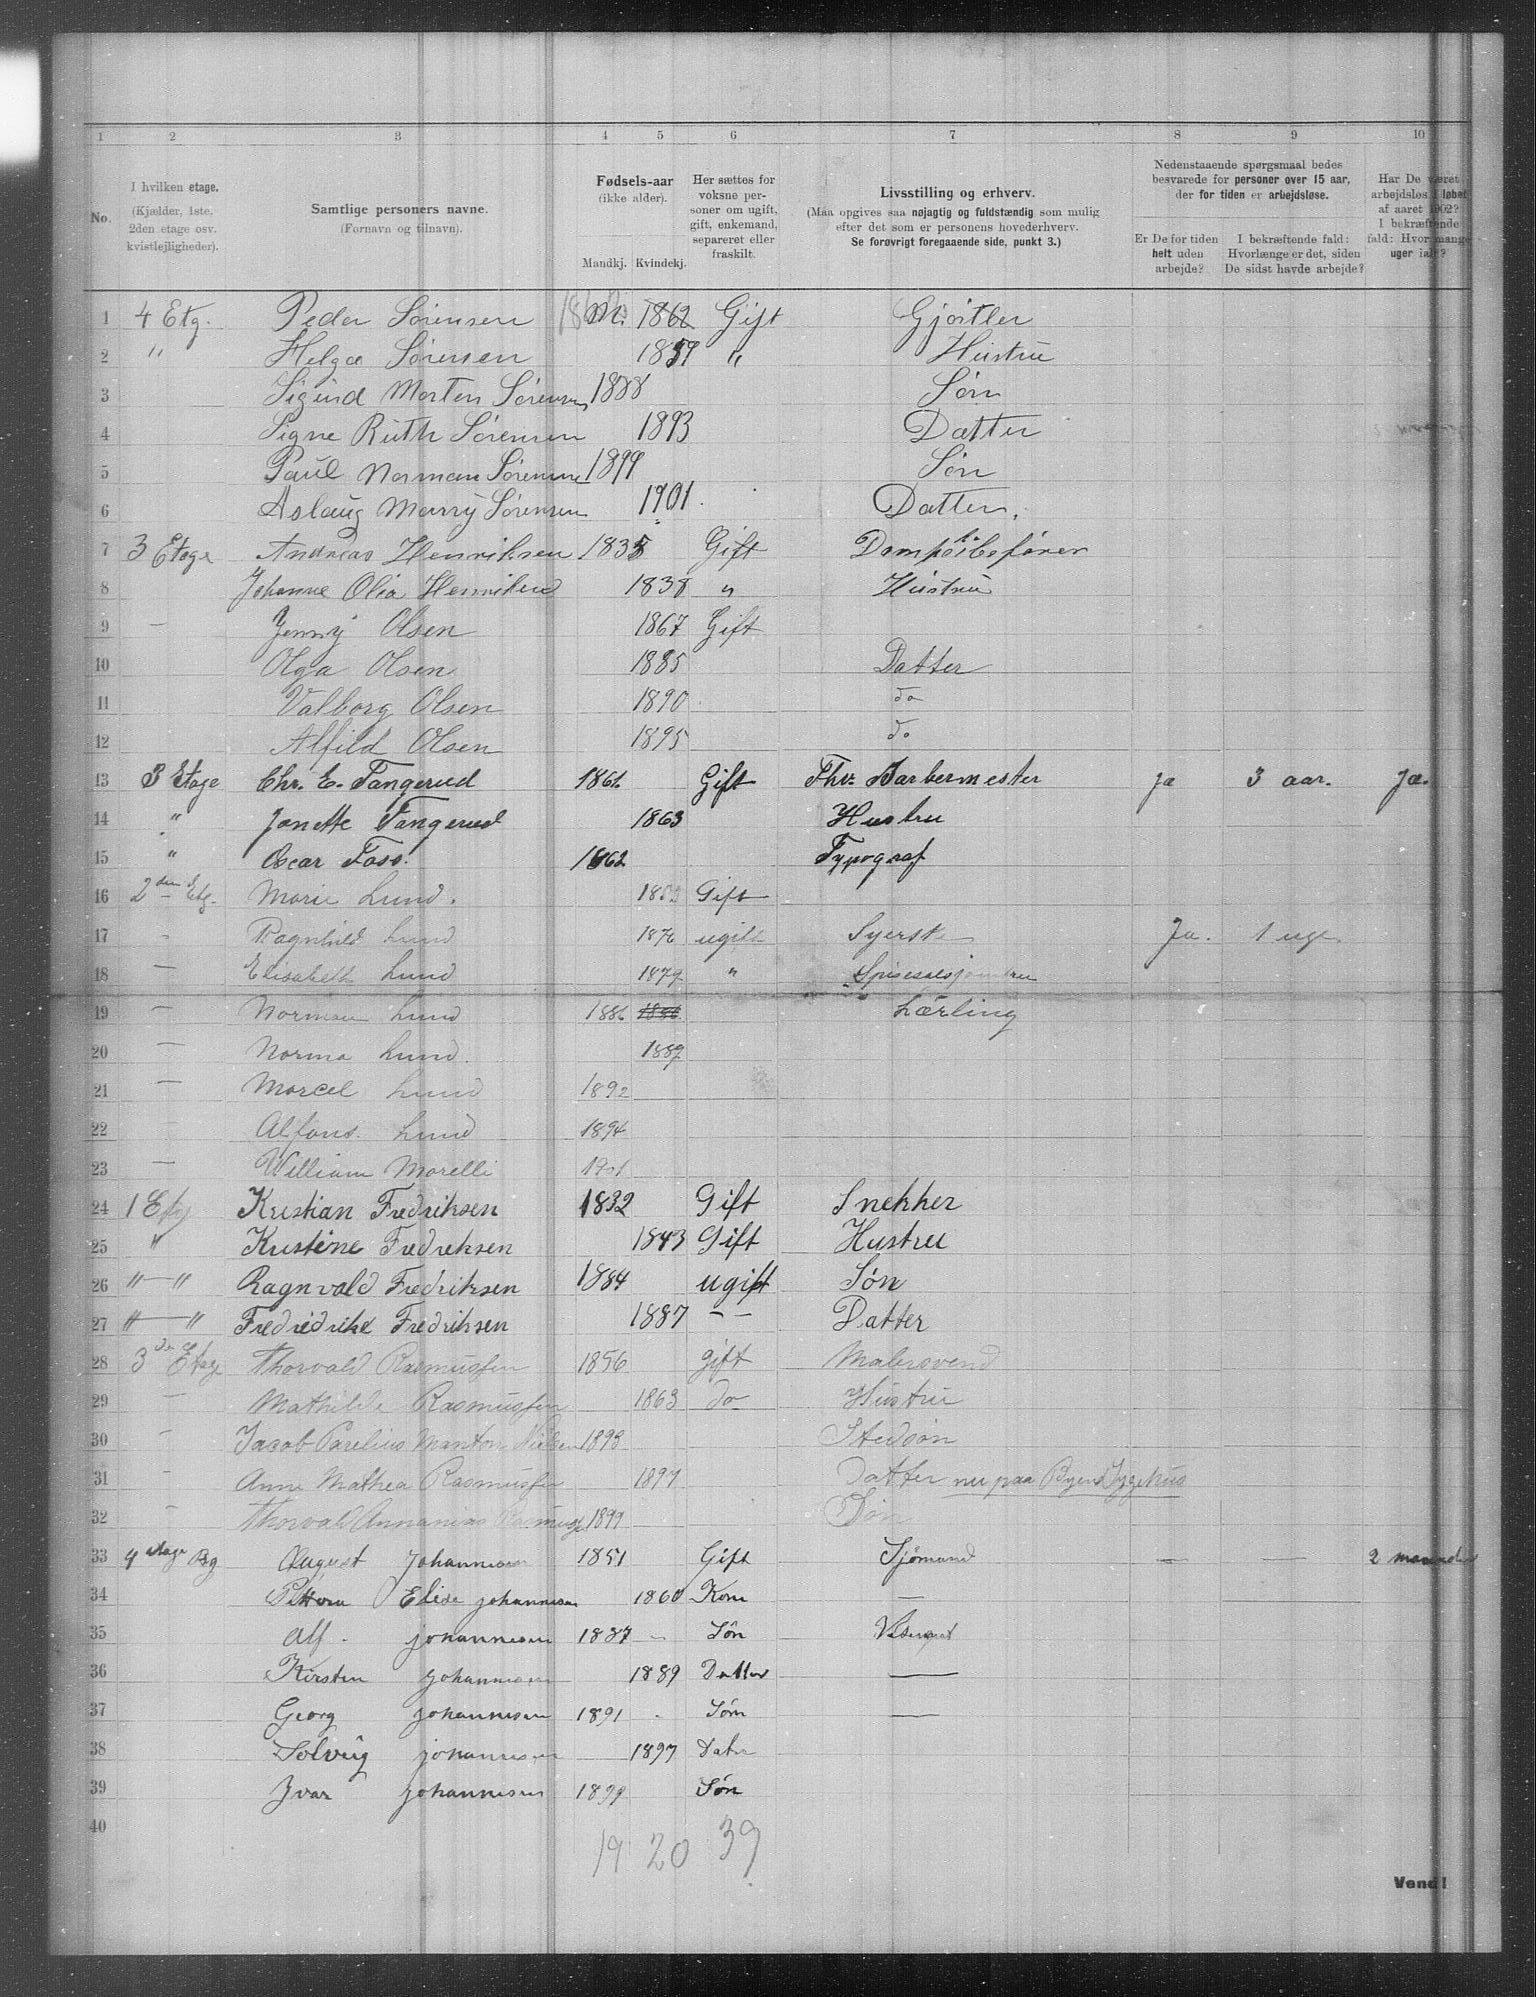 1 2 3 4 5 6 7 8 9 10
No.
I hvilken etage.
(Kjælder, 1ste,
2den etage osv.
kvistlejligheder).
Samtlige personers navne.
(Fornavn og tilnavn).
Fødsels-aar
(ikke alder).
Mandkj. Kvindekj.
Her sættes for
voksne per-
soner om ugift,
gift, enkemand,
separeret eller
fraskilt.
Livsstilling og erhverv.
(Maa opgives saa nøjagtig og fuldstændig som mulig
efter det som er personens hovederhverv.
Se forøvrigt foregaaende side, punkt 3.)
Nedenstaaende spørgsmaal bedes
besvarede for personer over 15 aar,
der for tiden er arbejdsløse.
Er De for tiden
helt uden
arbejde?
I bekræftende fald:
Hvorlænge er det, siden
De sidst havde arbejde?
Har De været
arbejdsløs i løbet
af aaret 1902?
I bekræftende
fald: Hvor mange
uger ialt?
1 4 Etg. Peder Sørensen M. 1862 Gift Gjørtler
2 " Helga Sørensen 1859 " Hustru
3 Sigurd Morten Sørensen 1888 Søn
4 Signe Ruth Sørensen 1893 Datter
5 Paul Norman Sørensen 1899 Søn
6 Aslaug Marry Sørensen 1901 Datter.
7 3 Etage Andreas Henriksen 1835 Gift
8 Johanne Olia Henriksen 1838 " Hustru
9 — Jenny Olsen 1867 Gift
10 Olga Olsen 1885 Datter
11 Valborg Olsen 1890 do
12 Alfild Olsen 1895 do
13 3 Etage Chr. E. Tangerud 1861. Gift Fhv. Barbermester Ja 3 aar. Ja.
14 " Janette Tangerud 1863 Hustru
15 " Oscar Foss. 1862 Typograf
16 2den Etg. Marie Lund. Gift
17 - Ragnhild Lund 1876 ugift Syerske Ja. 1 uge
18 — Elisabeth Lund 1879 " Spisesalsjomfru
19 — Norman Lund 1886 1886 Lærling
20 — Norma Lund. 1889
21 — Marcel Lund 1892
22 - Alfons. Lund 1894
23 — William Morelli 1901
24 1 Etg Kristian Fredriksen 1832 Gift Snekker
25 " Kristine Fredreksen 1843 Gift Hustru
26 " — " Ragnvald Fredriksen 1884 ugift Søn
27 " — " Fredridrike Fredriksen 1887 — — Datter
28 3de Etage Thorvald Rasmussen 1856 gift Malersvend
29 - Mathilde Rasmussen 1863 do Hustru
30 - Jacob Parelius Manton Nielsen 1893 Stedsøn
31 - Anne Mathea Rasmussen 1897 Datter nu paa Byens Sygehus
32 - Thorvald Annanias Rasmussen 1899 Søn
33 4 etage Bg August Johannesen 1851 Gift Sjømand — — 2 maaneder
34 Elise johannesen 1860 Kone —
35 Alf - johannesen 1887 - Søn Visergut
36 Kirsten johannesen 1889 Datter —
37 Georg johannesen 1891 - Søn —
38 Solveig johannesen 1897 Dater
39 Ivar johannesen 1899 Søn
40
19 20 39
Vend!